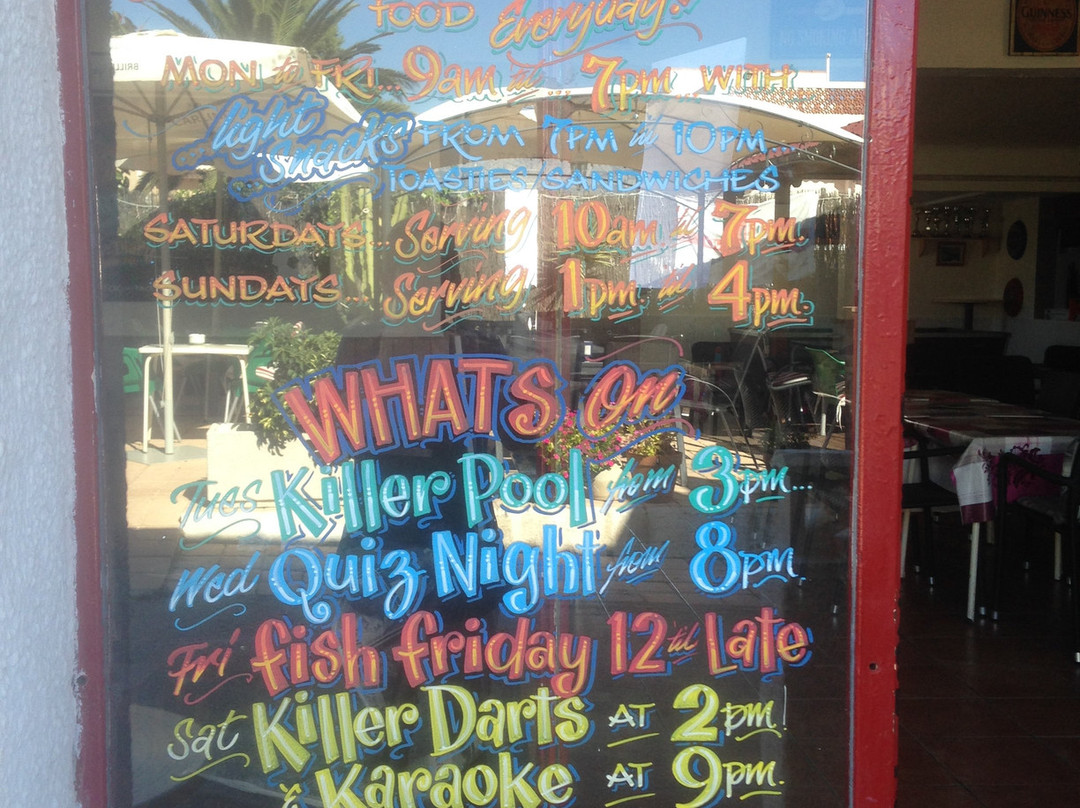 FOOD Everyday!
MON to FRI... 9am til... 7pm WITH
light snacks FROM 7PM til 10PM....
TOASTIES/SANDWICHES
SATURDAYS... Serving 10am til 7pm.
SUNDAYS... Serving 1pm. til 4pm.
WHATS On
Tues Killer Pool from 3pm...
Wed Quiz Night from 8pm.
Fri fish friday 12 til Late
Sat Killer Darts AT 2pm!
& Karaoke AT 9pm.
GUINNESS